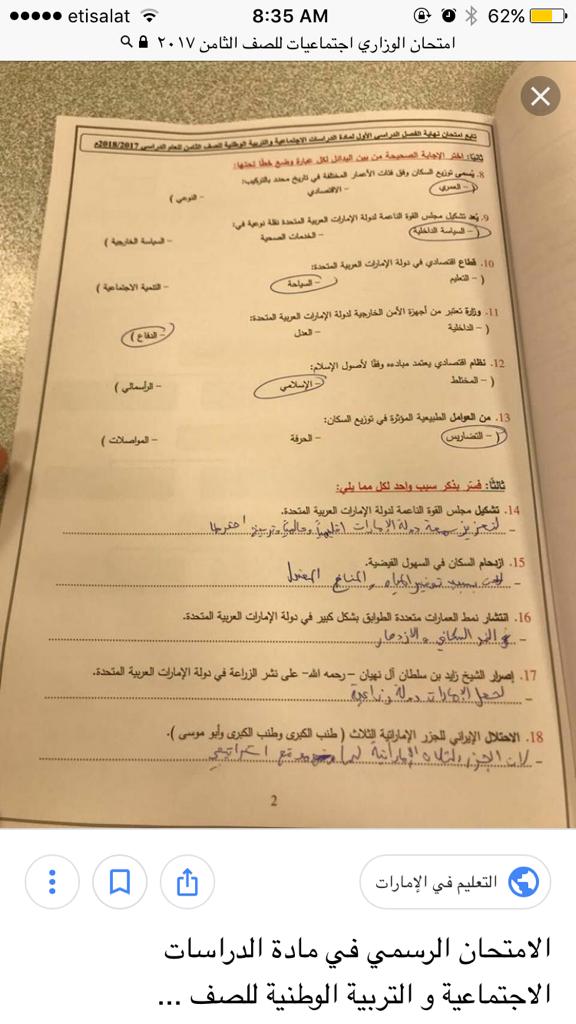 etisalat 8:35 AM 62%
امتحان الوزاري اجتماعيات للصف الثامن ٢٠١٧
تابع امتحان نهاية الفصل الدراسي الأول لمادة الدراسات الاجتماعية والتربية الوطنية للصف الثامن للعام الدراسي 2018/2017م
ثانيًا: اختر الإجابة الصحيحة من بين البدائل لكل عبارة وضع خطا تحتها:
8. يُسمى توزيع السكان وفق فئات الأعمار المختلفة في تاريخ محدد بالتركيب:
( - العمري - الاقتصادي - النوعي )
9. يُعد تشكيل مجلس القوة الناعمة لدولة الإمارات العربية المتحدة نقلة نوعية في:
( - السياسة الداخلية - الخدمات الصحية - السياسة الخارجية )
10. قطاع اقتصادي في دولة الإمارات العربية المتحدة:
( - التعليم - السياحة - التنمية الاجتماعية )
11. وزارة تعتبر من أجهزة الأمن الخارجية لدولة الإمارات العربية المتحدة:
( - الداخلية - العدل - الدفاع )
12. نظام اقتصادي يعتمد مبادءه وفقًا لأصول الإسلام:
( - المختلط - الإسلامي - الرأسمالي )
13. من العوامل الطبيعية المؤثرة في توزيع السكان:
( - التضاريس - الحرفة - المواصلات )
ثالثًا: فسّر بذكر سبب واحد لكل مما يلي:
14. تشكيل مجلس القوة الناعمة لدولة الإمارات العربية المتحدة.
- لتعزيز سمعة دولة الإمارات اقليمياً وعالمياً وترسيخ احترامها
15. ازدحام السكان في السهول الفيضية.
- بسبب توفير المياه والمناخ المعتدل
16. انتشار نمط العمارات متعددة الطوابق بشكل كبير في دولة الإمارات العربية المتحدة.
- السكاني والازدهار
17. إصرار الشيخ زايد بن سلطان آل نهيان – رحمه الله- على نشر الزراعة في دولة الإمارات العربية المتحدة.
- لجعل الإمارات دولة زراعية
18. الاحتلال الإيراني للجزر الإماراتية الثلاث ( طنب الكبرى وطنب الكبرى وأبو موسى ).
- لان الجزر الثلاث الإماراتية لها موقع استراتيجي
2
التعليم في الإمارات
الامتحان الرسمي في مادة الدراسات
الاجتماعية و التربية الوطنية للصف ...